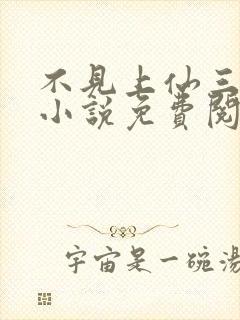 不見上仙三
小說免費閱
宇宙是一碗湯